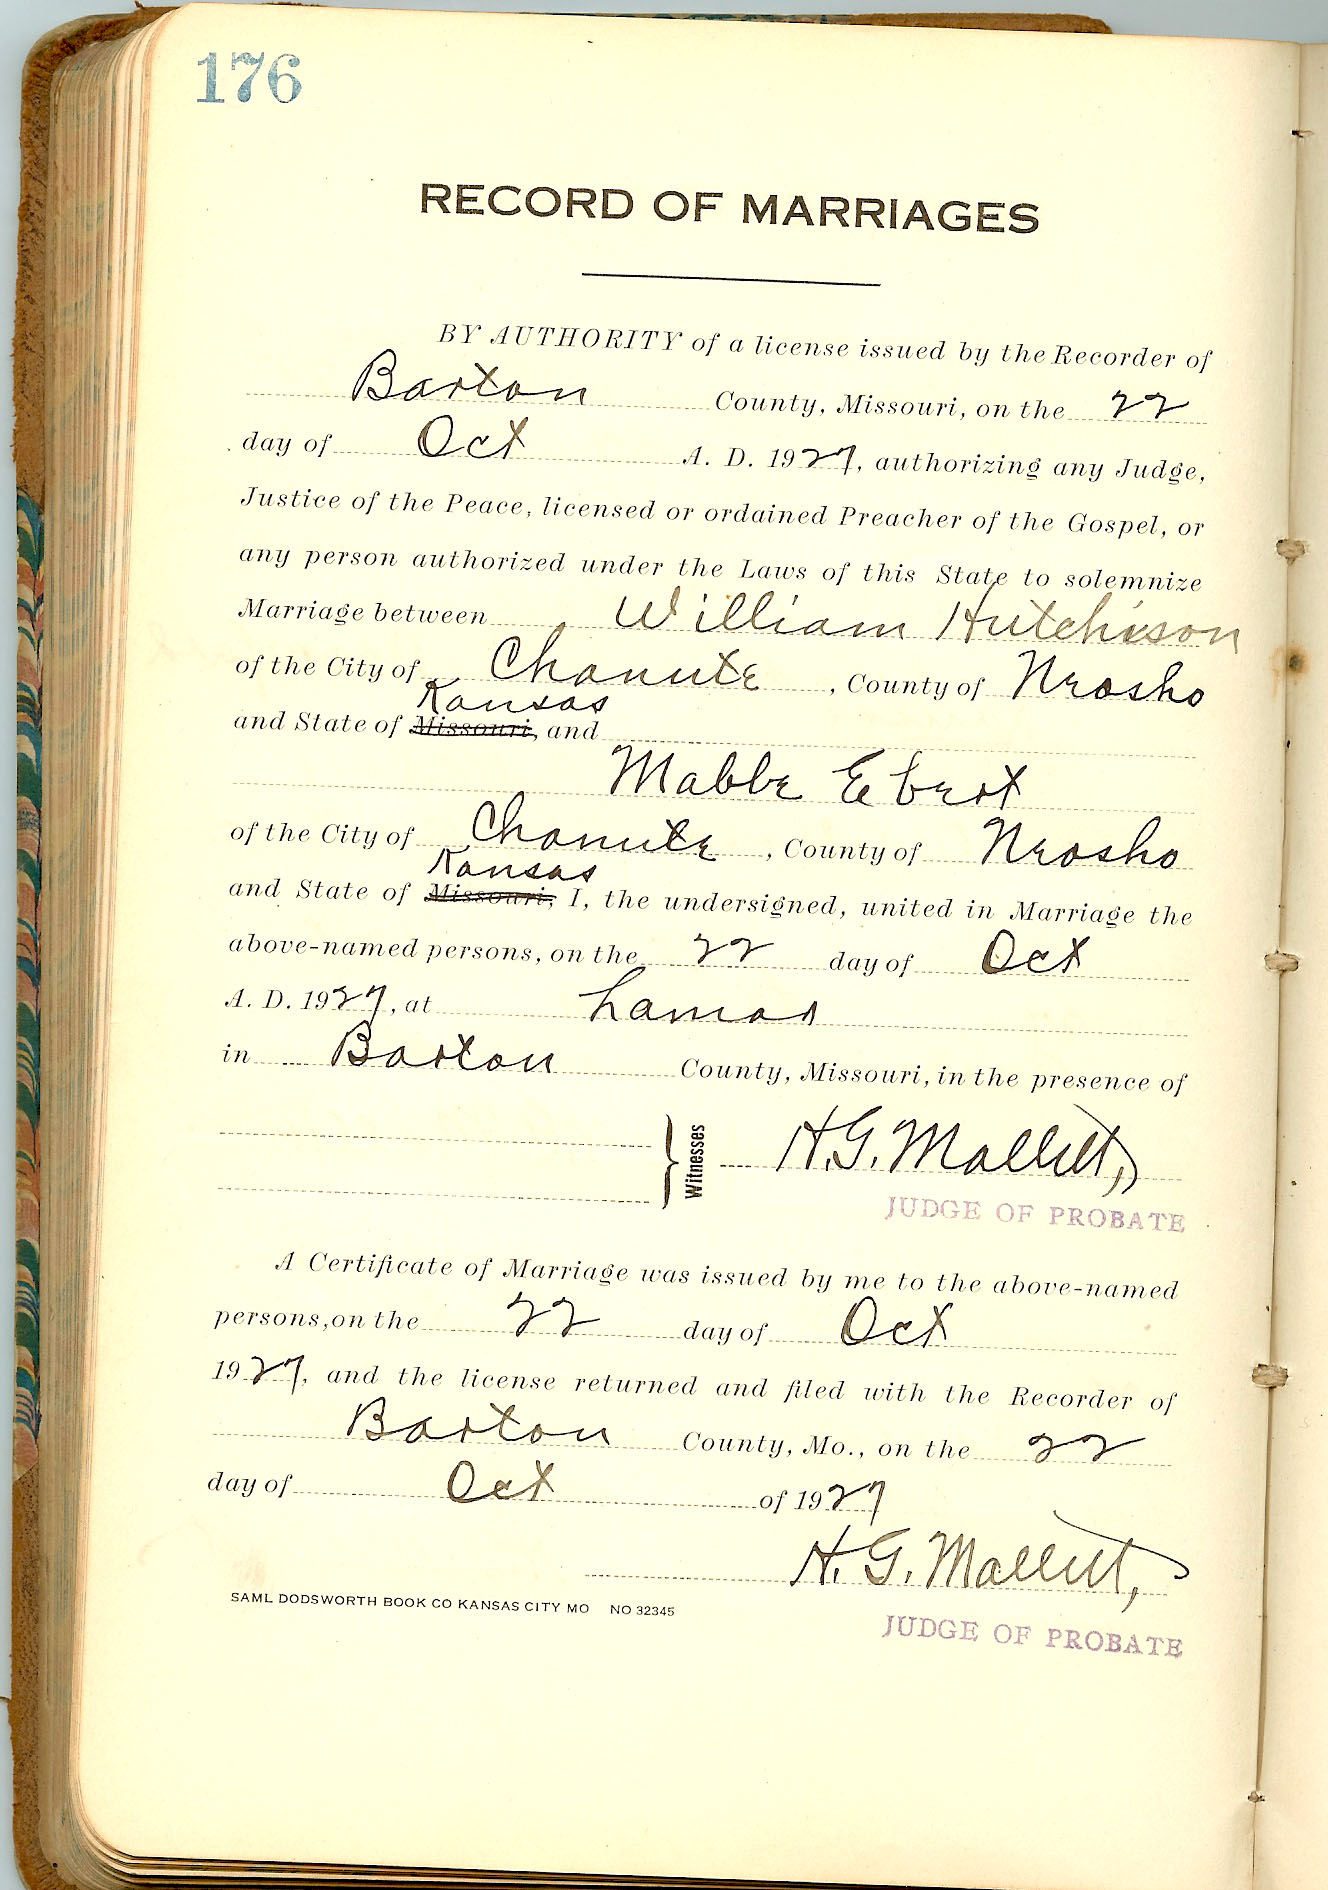 176
RECORD OF MARRIAGES
BY AUTHORITY of a license issued by the Recorder of
Barton County, Missouri, on the 22
day of Oct A. D. 1927, authorizing any Judge,
Justice of the Peace, licensed or ordained Preacher of the Gospel, or
any person authorized under the Laws of this State to solemnize
Marriage between William Hutchison
of the City of Chanute, County of Neosho
Kansas
and State of Missouri, and
Mabbe Ebert
of the City of Chanute, County of Neosho
Kansas
and State of Missouri, I, the undersigned, united in Marriage the
above-named persons, on the 22 day of Oct
A. D. 1927, at Lamar
in Barton County, Missouri, in the presence of
Witnesses H. G. Mallett,
JUDGE OF PROBATE
A Certificate of Marriage was issued by me to the above-named
persons, on the 22 day of Oct
1927, and the license returned and filed with the Recorder of
Barton County, Mo., on the 22
day of Oct of 1927
H. G. Mallett,
SAML DODSWORTH BOOK CO KANSAS CITY MO NO 32345
JUDGE OF PROBATE